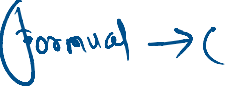 (Formual → (